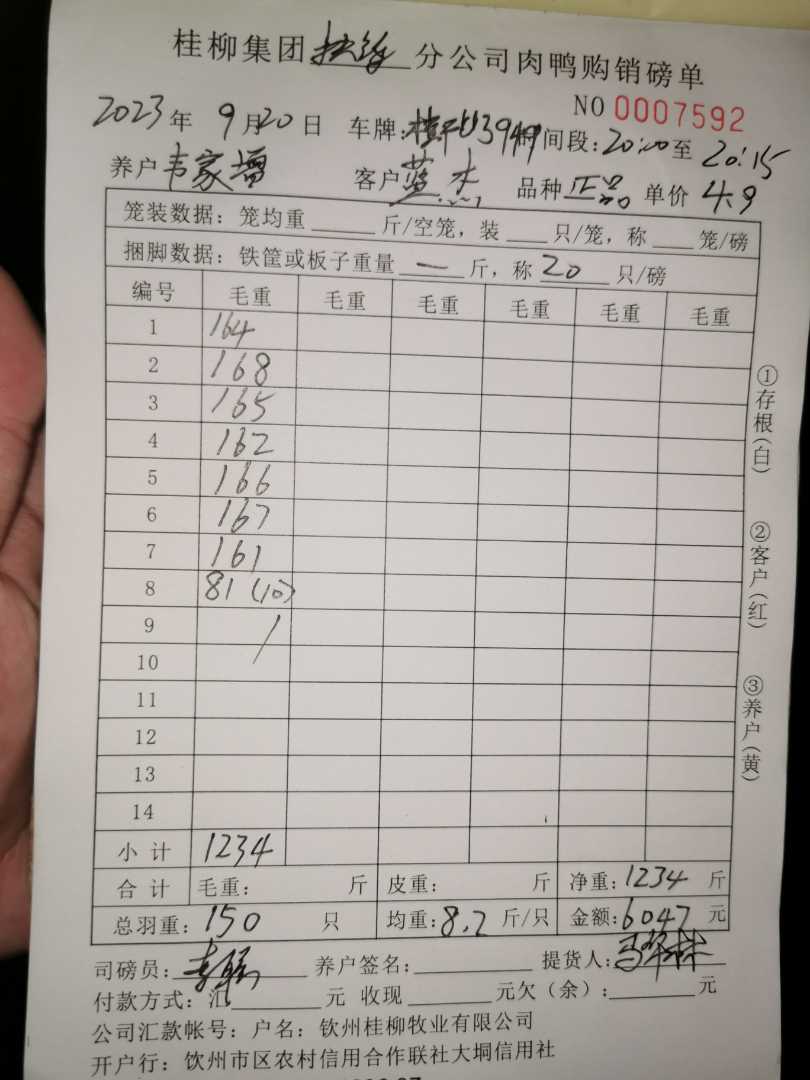 桂柳集团 分公司肉鸭购销磅单
NO 0007592
2023年 9月20日 车牌: 3949 时间段:20:00至20:15
养户 韦家增 客户 蓝杰 品种 正品 单价 4.9
笼装数据:笼均重____斤/空笼,装___只/笼,称___笼/磅
捆脚数据:铁筐或板子重量 一 斤,称 20 只/磅
编号 毛重 毛重 毛重 毛重 毛重 毛重
1 164
2 168
3 165
4 162
5 166
6 167
7 161
8 81(10)
9 /
10
11
12
13
14
小计 1234
合计 毛重: 斤 皮重: 斤 净重:1234 斤
总羽重:150 只 均重:8.2 斤/只 金额:6047 元
司磅员: 养户签名: 提货人:
付款方式:汇____元 收现____元欠(余):____元
公司汇款帐号:户名:钦州桂柳牧业有限公司
开户行:饮州市区农村信用合作联社大垌信用社
①存根(白)
②客户(红)
③养户(黄)